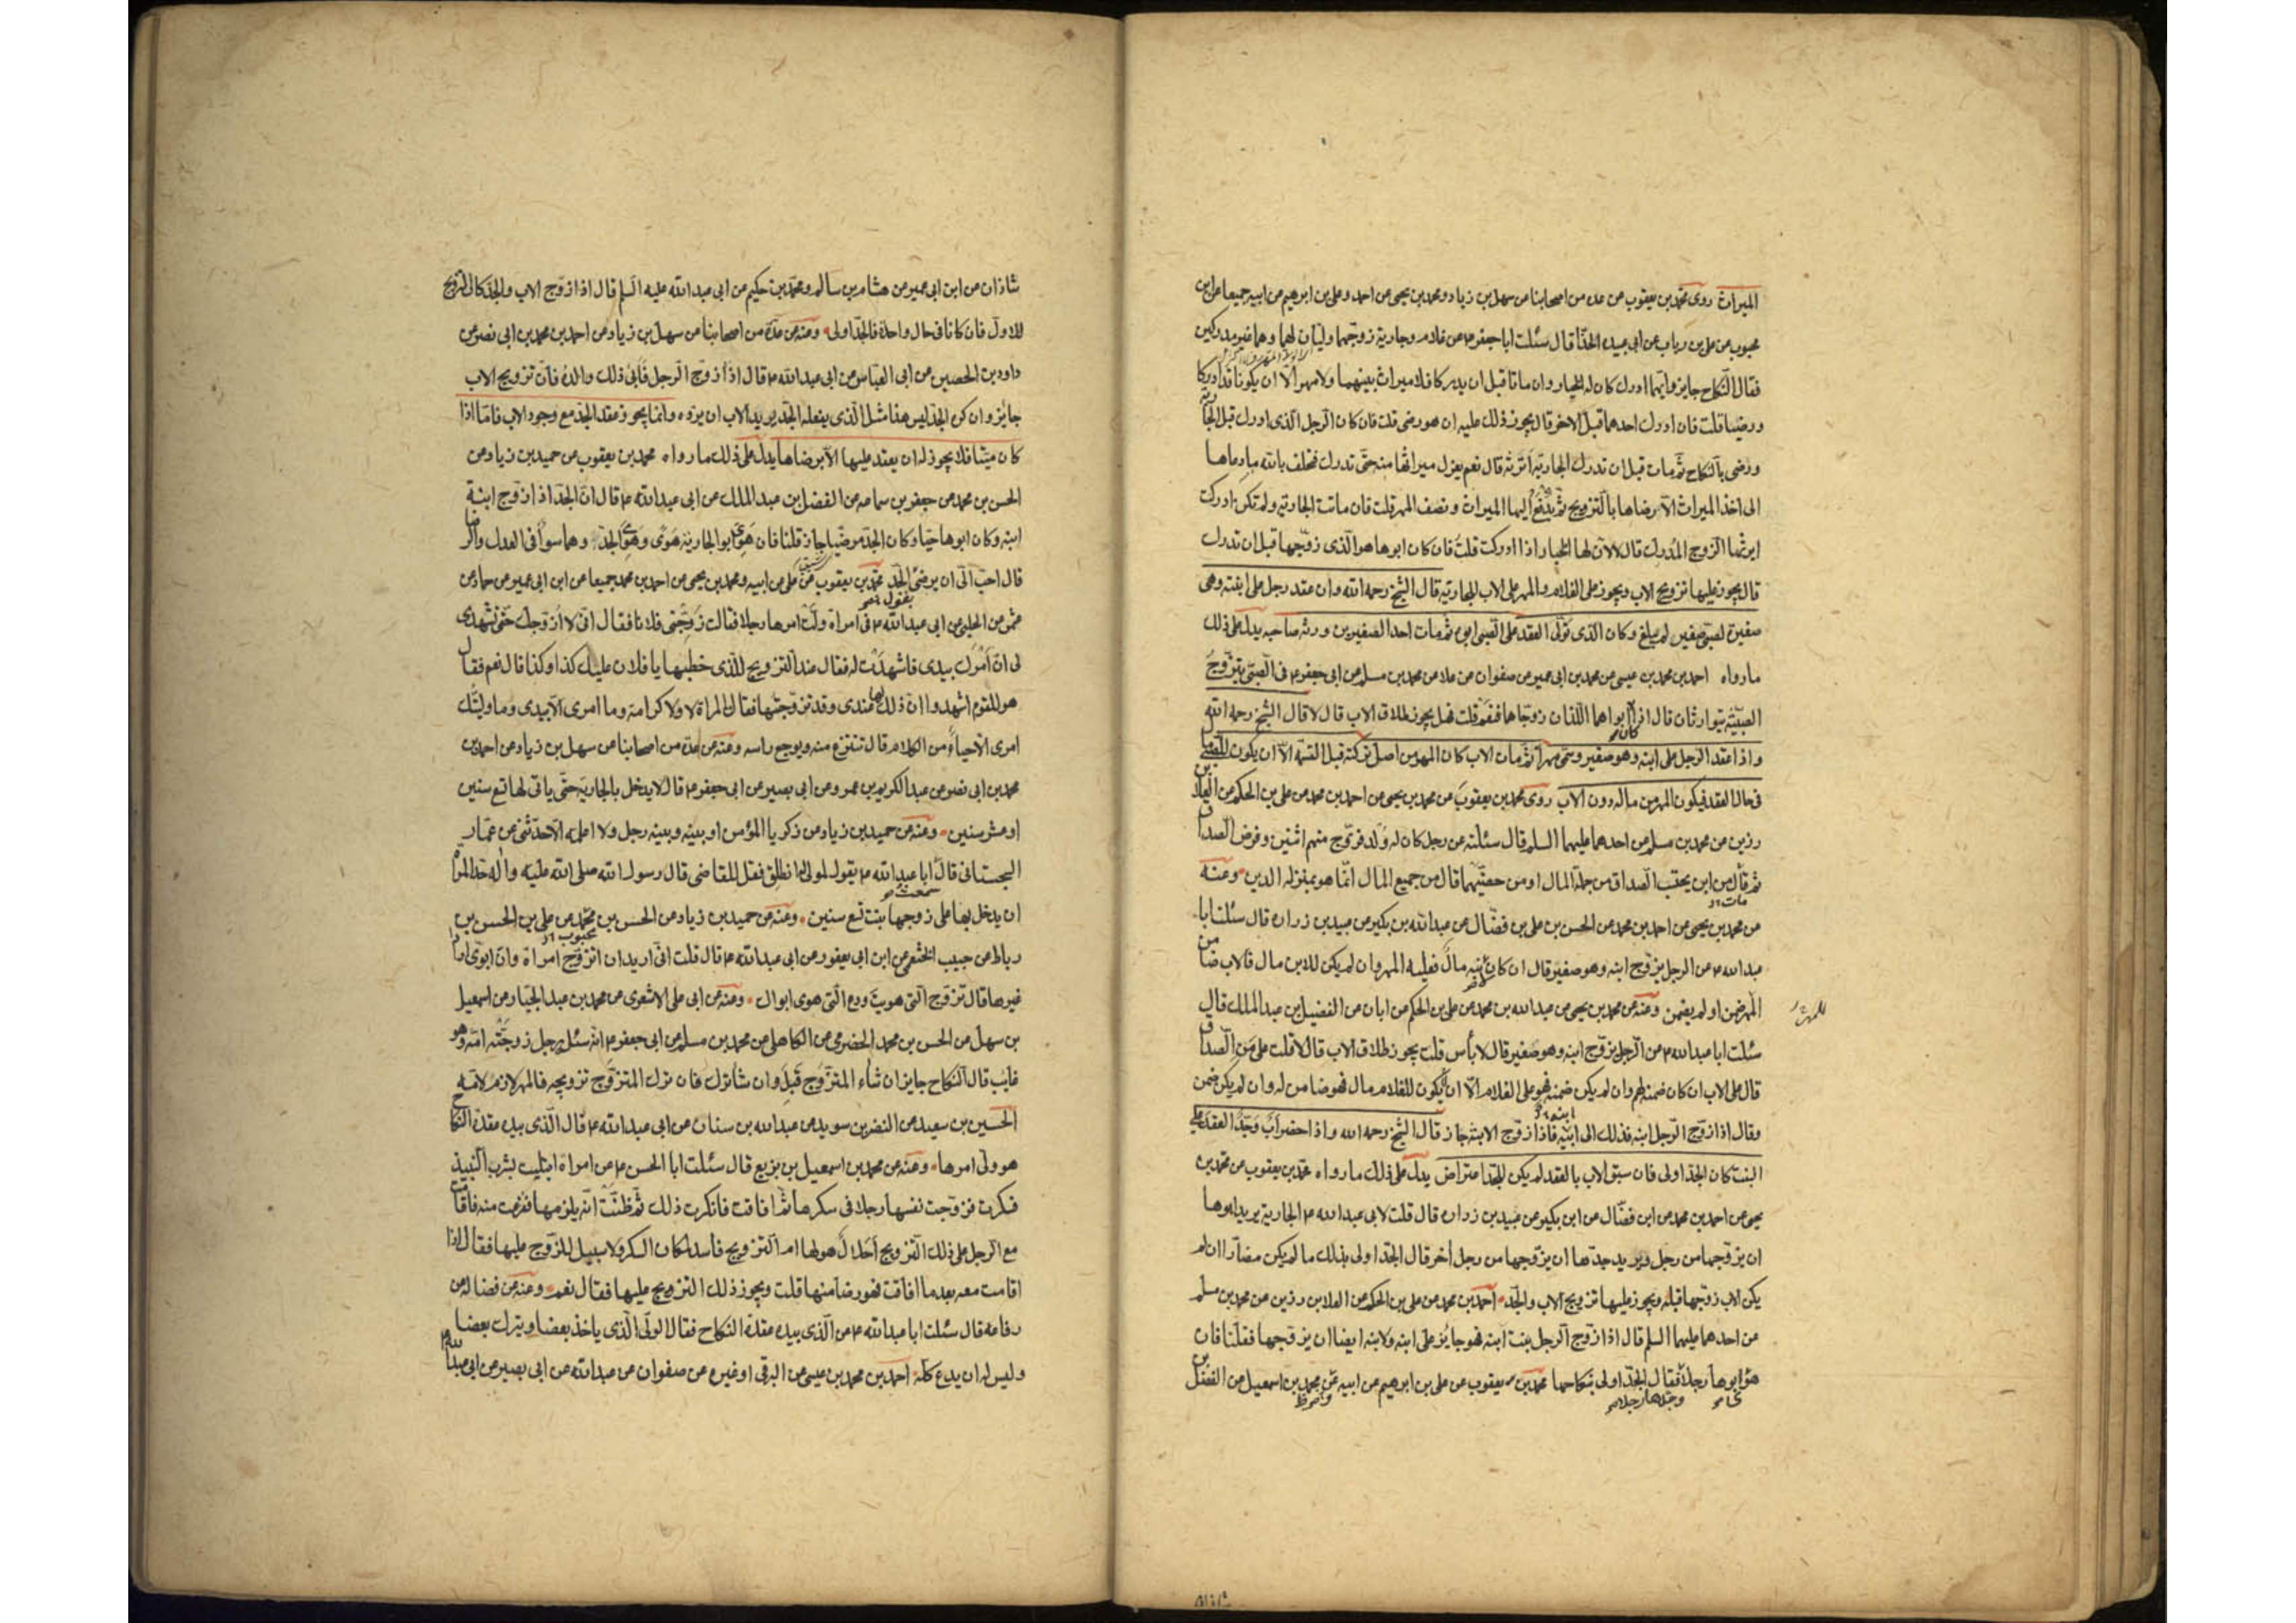 الميراث روى محمد بن يعقوب عن عدة من اصحابنا عن سهل بن زياد ومحمد بن يحيى عن احمد وعلى بن ابرهيم عن ابيه جميعا عن ابن
محبوب عن على بن رياب عن ابى عبيده الحذّا قال سئلت ابا جعفر ع عن غلام وجارية زوجهما وليّان لهما وهما غير مدركين
فقال النّكاح جايز وايّهما ادرك كان له الخيار وان ماتا قبل ان يدركا فلا ميراث بينهما ولا مهر الّا ان يكونا قد ادركا
ورضيا قلت فان ادرك احدهما قبل الاخر قال يجوز ذلك عليه ان هو رضى قلت فان كان الرجل الّذى ادرك قبل الجارية
ورضى بالنكاح ثم مات قبل ان تدرك الجارية اترثه قال نعم يعزل ميراثها منه حتى تدرك فتحلف بالله ما دعاها
الى اخذ الميراث الّا رضاها بالتّزويج ثم يدفع اليها الميراث ونصف المهر قلت فان ماتت الجارية ولم تكن ادركت
ايرثها الزوج المدرك قال لا لان لها الخيار اذا ادركت قلت فان كان ابوها هو الّذى زوّجها قبل ان تدرك
قال يجوز عليها تزويج الاب ويجوز على الغلام والمهر على الاب للجارية قال الشيخ رحمه الله وان عقد رجل على ابنته وهى
صغيرة لصبىّ صغير لم يبلغ وكان الّذى تولّى العقد على الصّبى ابوه ثم مات احد الصغيرين ورثه صاحبه يدل على ذلك
ما رواه احمد بن محمد بن عيسى عن محمد بن ابى عمير عن صفوان عن علا عن محمد بن مسلم عن ابى جعفر ع فى الصّبىّ يتزوّج
الصبيّة يتوارثان قال اذا كان ابواهما اللّذان زوّجاهما فنعم قلت فهل يجوز طلاق الاب قال لا قال الشيخ رحمه الله
واذا عقد الرجل على ابنه وهو صغير وسمّى مهرا ثم مات الاب كان المهر من اصل تركته قبل القسمة الّا ان يكون للصّبى مال
فى حال العقد فيكون المهر من ماله دون الاب روى محمد بن يعقوب عن محمد بن يحيى عن احمد بن محمد عن على بن الحكم عن العلا بن
رزين عن محمد بن مسلم عن احدهما عليهما السلم قال سئلته عن رجل كان له ولد فزوّج منهم اثنين وفرض الصداق
ثم مات من اين يحتسب الصداق من جملة المال او من حصّتهما قال من جميع المال انّما هو بمنزلة الدين ومنه
عن محمد بن يحيى عن احمد بن محمد عن الحسن بن على بن فضّال عن عبد الله بن بكير عن عبيد بن زراره قال سئلت ابا
عبد الله ع عن الرجل يزوّج ابنه وهو صغير قال ان كان لابنه مال فعليه المهر وان لم يكن للابن مال فالاب ضامن
المهر ضمن او لم يضمن ومنه عن محمد بن يحيى عن عبد الله بن محمد عن على بن الحكم عن ابان عن الفضيل بن عبد الملك قال
سئلت ابا عبد الله ع عن الرّجل يزوّج ابنه وهو صغير قال لا بأس قلت يجوز طلاق الاب قال لا قلت على من الصّداق
قال على الاب ان كان ضمنه لهم وان لم يكن ضمنه فهو على الغلام الّا ان لا يكون للغلام مال فهو ضامن له وان لم يكن ضمن
وقال اذا زوّج الرّجل ابنه فذلك الى ابنه فاذا زوّج الابنة جاز قال الشيخ رحمه الله واذا حضر اب وجدّ العقد على
البنت كان الجدّ اولى فان سبق الاب بالعقد لم يكن للجدّ اعتراض يدلّ على ذلك ما رواه محمد بن يعقوب عن محمد بن
يحيى عن احمد بن محمد عن ابن فضّال عن ابن بكير عن عبيد بن زراره قال قلت لابى عبد الله ع الجارية يريد ابوها
ان يزوّجها من رجل ويريد جدّها ان يزوّجها من رجل أخر قال الجدّ اولى بذلك ما لم يكن مضآرّا ان لم
يكن الاب زوّجها قبله ويجوز عليها تزويج الاب والجدّ احمد بن محمد عن على بن الحكم عن العلا بن رزين عن محمد بن مسلم
عن احدهما عليهما السلم قال اذا زوّج الرّجل بنت ابنه فهو جائز على ابنه ولابنه ايضا ان يزوّجها فقلنا فان
هوى ابوها رجلا وجدّها رجلا فقال الجدّ اولى بنكاحها محمد بن يعقوب عن على بن ابرهيم عن ابيه عن محمد بن اسمعيل عن الفضل بن
شاذان
شاذان عن ابن ابى عمير عن هشام بن سالم ومحمد بن حكيم عن ابى عبد الله عليه السلم قال اذا زوّج الاب والجدّ كان التزويج
للاوّل فان كانا فى حال واحدة فالجدّ اولى ومنه عن عدّة من اصحابنا عن سهل بن زياد عن احمد بن محمد بن ابى نصر عن
داود بن الحصين عن ابى العبّاس عن ابى عبد الله ع قال اذا زوّج الرّجل فابى ذلك والده فانّ تزويج الاب
جايز وان كره الجدّ ليس هذا مثل الّذى يفعله الجدّ ثم يريد الاب ان يردّه وانما يجوز عقد الجدّ مع وجود الاب فامّا اذا
كان ميّتا فلا يجوز له ان يعقد عليها الّا برضاها يدل على ذلك ما رواه محمد بن يعقوب عن حميد بن زياد عن
الحسن بن محمد عن جعفر بن سماعه عن الفضل بن عبد الملك عن ابى عبد الله ع قال انّ الجدّ اذا زوّج ابنة
ابنه وكان ابوها حيّا وكان الجدّ مرضيّا جاز قلنا فان هوى ابو الجارية هوى وهوى الجدّ وهما سوآ فى العدل والرضا
قال احبّ الىّ ان يرضى الجدّ محمد بن يعقوب عن على عن ابيه ومحمد بن يحيى عن احمد بن محمد جميعا عن ابن ابى عمير عن حماد بن
عثمن عن الحلبى عن ابى عبد الله ع فى امراة ولّت امرها رجلا فقالت زوّجنى فلانا فقال انّى لا ازوّجك حتى تشهدى
لى انّ امرك بيدى فاشهدت له فقال عند التزويج للّذى خطبها يا فلان عليك كذا وكذا قال نعم فقال
هو للقوم اشهدوا ان ذلك لها عندى وقد تزوّجتها فقالت المراة لا ولا كرامة وما امرى الّا بيدى وما ولّيتك
امرى الّا حياء من الكلام قال تنتزع منه ويوجع راسه ومنه عن عدة من اصحابنا عن سهل بن زياد عن احمد بن
محمد بن ابى نصر عن عبد الكريم بن عمرو عن ابى بصير عن ابى جعفر ع قال لا يدخل بالجارية حتّى ياتى لها تسع سنين
او عشر سنين ومنه عن حميد بن زياد عن زكريا المؤمن او بينه وبينه رجل ولا اعلمه الّا حدّثنى عن عمّار
السجستانى قال سمعت ابا عبد الله ع يقول لمولى له انطلق فقل للقاضى قال رسول الله صلى الله عليه واله حدّ المراة
ان يدخل بها على زوجها بنت تسع سنين ومنه عن حميد بن زياد عن الحسن بن محمد عن على بن الحسن بن
رباط عن حبيب الخثعمى عن ابن ابى يعفور عن ابى عبد الله ع قال قلت انّى اريد ان اتزوّج امراة وان ابوىّ ارادا
غيرها قال تزوّج الّتى هويت ودع الّتى هوى ابواك ومنه عن ابى على الاشعرى عن محمد بن عبد الجبّار عن اسمعيل
بن سهل عن الحسن بن محمد الحضرمى عن الكاهلى عن محمد بن مسلم عن ابى جعفر ع انّه سئل عن رجل زوّجته امّه وهو
غايب قال النّكاح جايز ان شآء المتزوّج قبل وان شاء ترك فان ترك المتزوّج تزويجه فالمهر لازم لامّه
الحسين بن سعيد عن النضر بن سويد عن عبد الله بن سنان عن ابى عبد الله ع قال الّذى بيده عقدة النكاح
هو ولى امرها ومنه عن محمد بن اسمعيل بن بزيع قال سئلت ابا الحسن ع عن امراة ابتليت بشرب النّبيذ
فسكرت فزوّجت نفسها رجلا فى سكرها ثم افاقت فانكرت ذلك ثم ظنّت انّه يلزمها ففزعت منه فاقامت
مع الرّجل على ذلك التّزويج أحلال هو لها ام التزويج فاسد لمكان السكر ولا سبيل للزّوج عليها فقال اذا
اقامت معه بعد ما افاقت فهو رضا منها قلت ويجوز ذلك التزويج عليها فقال نعم ومنه عن فضالة عن
رفاعه قال سئلت ابا عبد الله ع عن الّذى بيده عقدة النكاح فقال الولّى الّذى ياخذ بعضا ويترك بعضا
وليس له ان يدع كلّه احمد بن محمد بن عيسى عن البرقى او غيره عن صفوان عن عبد الله عن ابى بصير عن ابى عبد الله ع